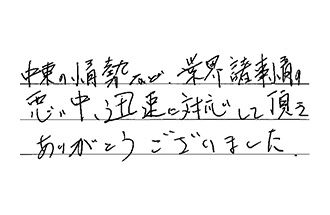 中東の情勢など、業界諸事情の
悪い中、迅速に対応して頂き
ありがとうございました。